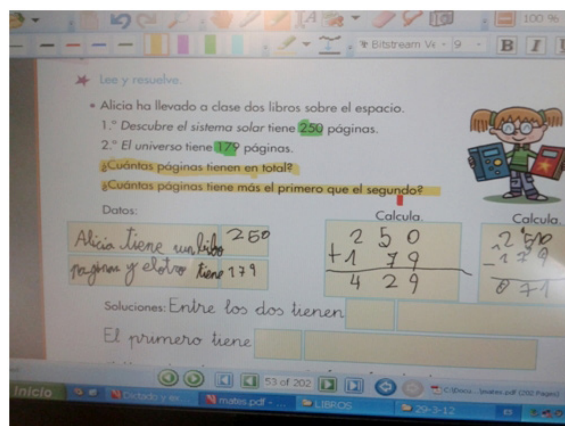 100 %
Bitstream Ve 9 B I
Lee y resuelve.
• Alicia ha llevado a clase dos libros sobre el espacio.
1.º Descubre el sistema solar tiene 250 páginas.
2.º El universo tiene 179 páginas.
¿Cuántas páginas tienen en total?
¿Cuántas páginas tiene más el primero que el segundo?
Datos:
Alicia tiene un libro 250
paginas y el otro tiene 179
Calcula.
250
+179
429
Calcula.
250
-179
071
Soluciones: Entre los dos tienen
El primero tiene
53 of 202
Inicio
Dictado y ex...
mates.pdf - ...
LIBROS
29-3-12
ES